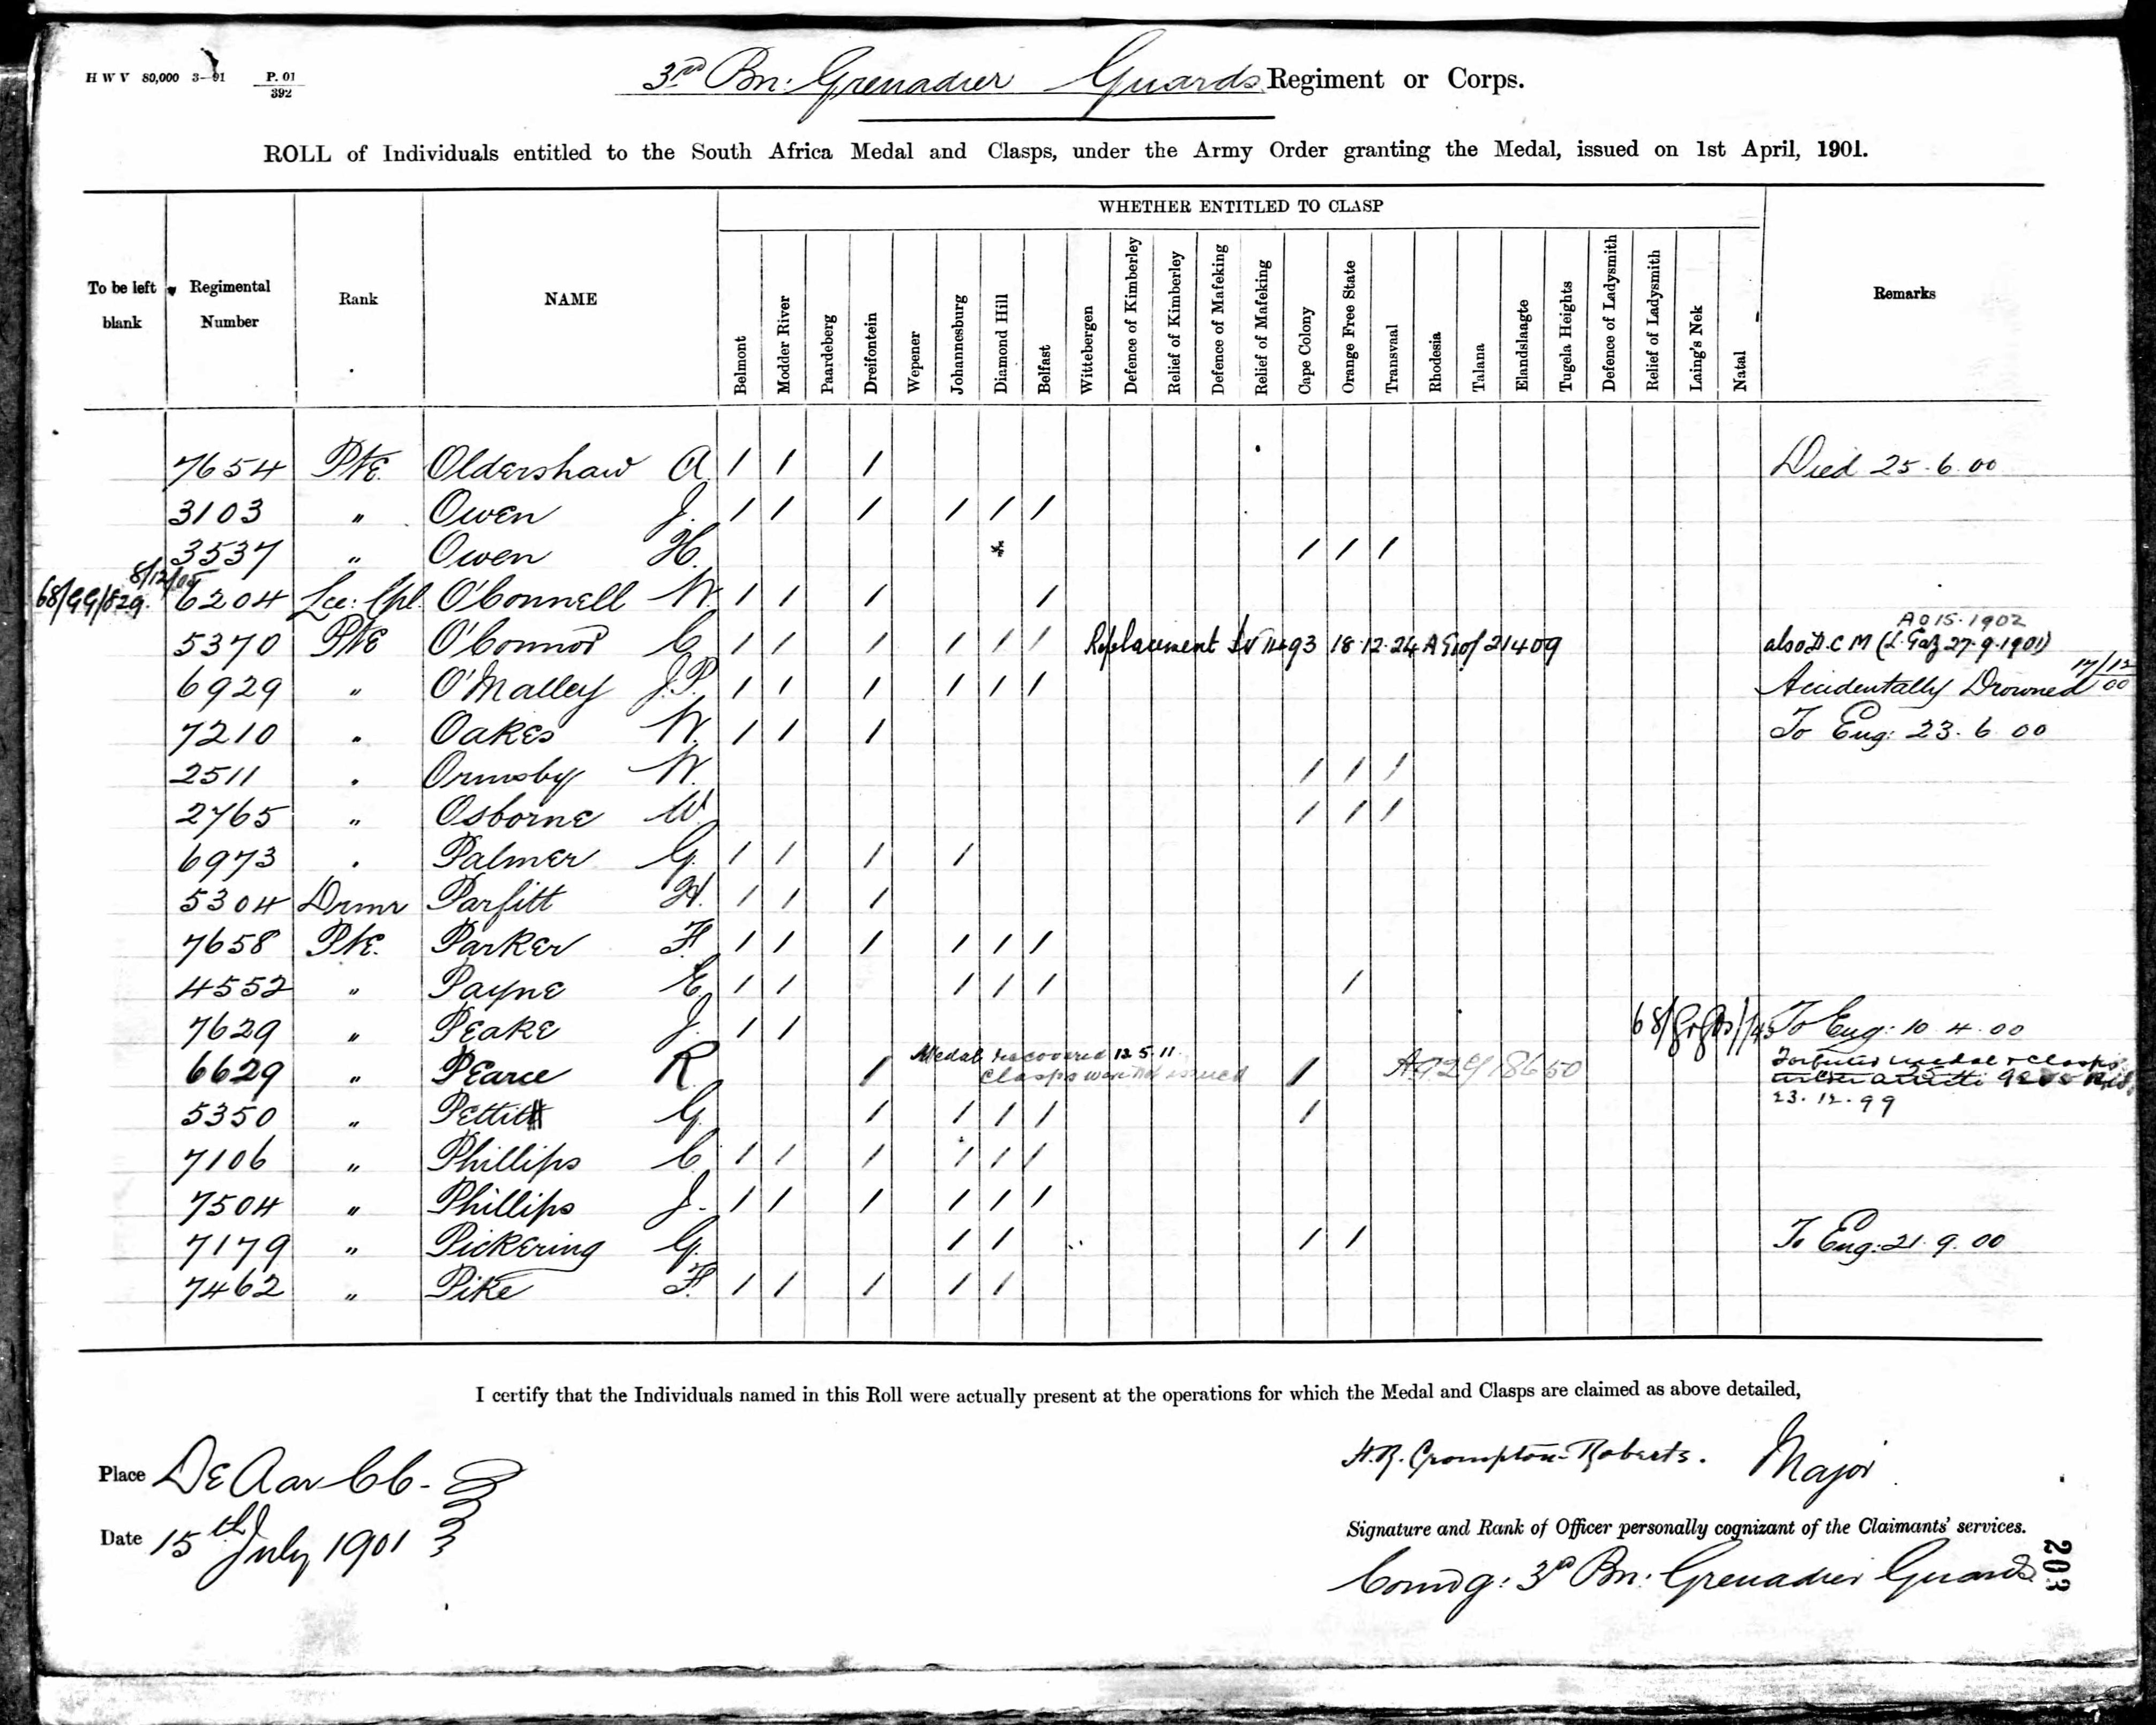 H W V 80,000 3—91 P. 01/392
3rd Bn: Grenadier Guards Regiment or Corps.
ROLL of Individuals entitled to the South Africa Medal and Clasps, under the Army Order granting the Medal, issued on 1st April, 1901.
WHETHER ENTITLED TO CLASP
To be left blank Regimental Number Rank NAME Belmont Modder River Paardeberg Dreifontein Wepener Johannesburg Diamond Hill Belfast Wittebergen Defence of Kimberley Relief of Kimberley Defence of Mafeking Relief of Mafeking Cape Colony Orange Free State Transvaal Rhodesia Talana Elandslaagte Tugela Heights Defence of Ladysmith Relief of Ladysmith Laing's Nek Natal Remarks
7654 Pte. Oldershaw A. / / / Died 25.6.00
3103 " Owen J. / / / / / /
3537 " Owen H. / / /
8/12/05
68/GG/829. 6204 Lce: Cpl. O'Connell W. / / / /
A015.1902
5370 Pte O'Connor C. / / / / / / Replacement 18.12.24 21409 also D.C M (L.Gaz 27.9.1901)
6929 " O'Malley J.P. / / / / / / Accidentally Drowned 17/12/00
7210 " Oakes W. / / / To Eng: 23.6.00
2511 " Ormsby W. / / /
2765 " Osborne W. / / /
6973 " Palmer G. / / / /
5304 Drmr Parfitt H. / / /
7658 Pte. Parker F. / / / / / /
4552 " Payne E. / / / / / /
7629 " Peake J. / / To Eng: 10.4.00
Medal recovered 12.5.11.
6629 " Pearce R. / Clasps were not issued / Forfeited medal & clasps
23.12.99
5350 " Pettitt G. / / / / /
7106 " Phillips C. / / / / / /
7504 " Phillips J. / / / / / /
7179 " Pickering G. / / / / To Eng: 21.9.00
7462 " Pike F. / / / / /
I certify that the Individuals named in this Roll were actually present at the operations for which the Medal and Clasps are claimed as above detailed,
Place De Aar CC.
H.R. Crompton-Roberts. Major
Date 15th July 1901
Signature and Rank of Officer personally cognizant of the Claimants' services.
Comdg: 3rd Bn: Grenadier Guards
203